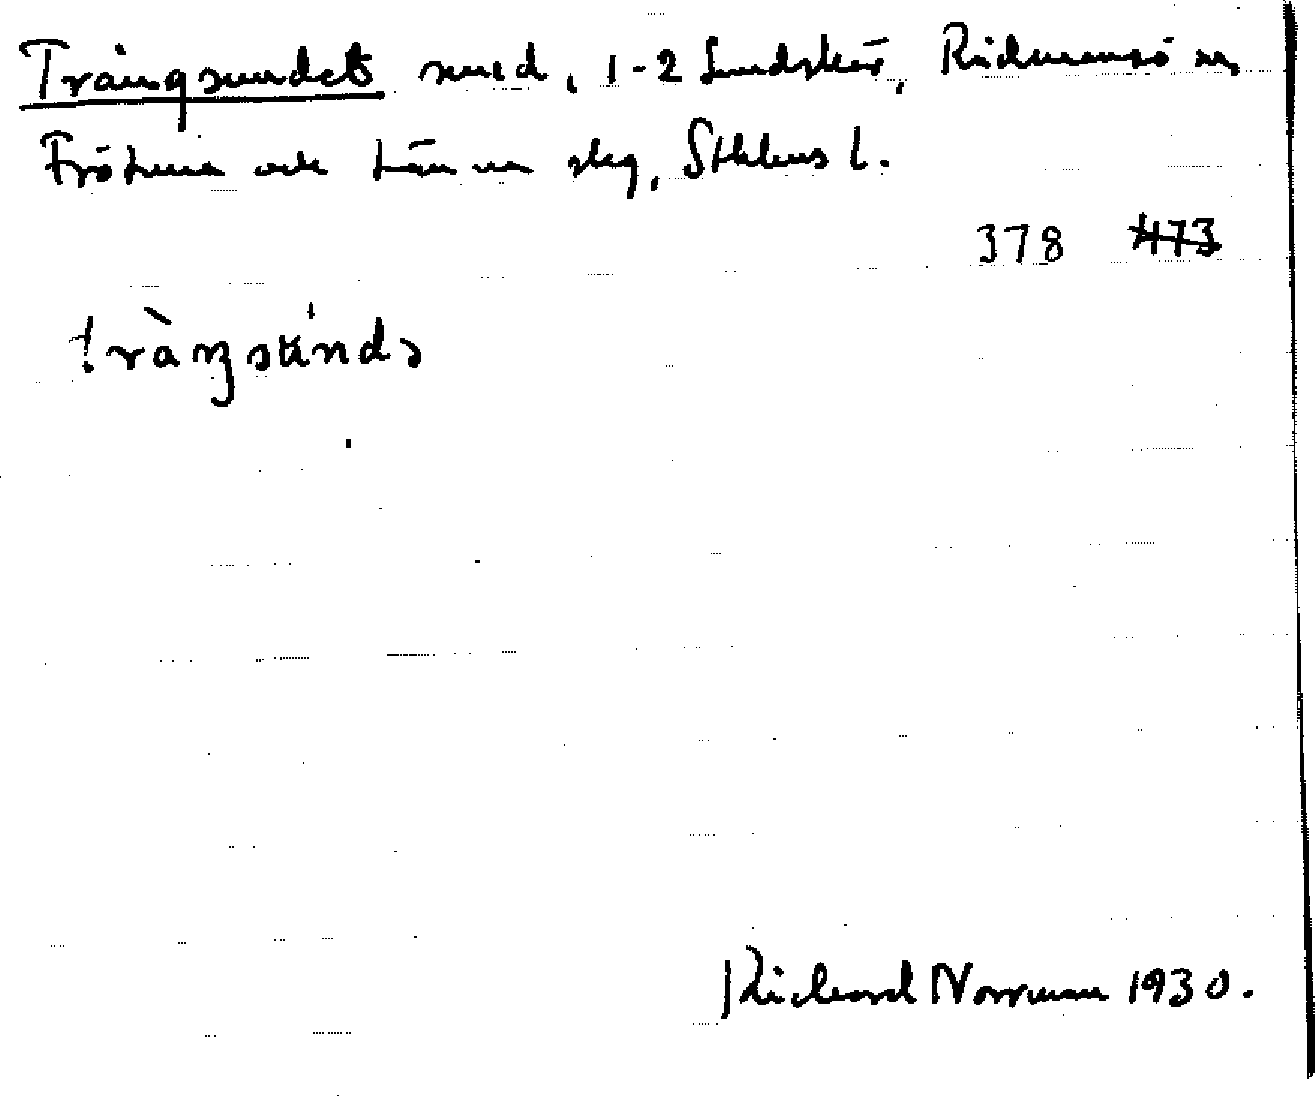 Trångsundet sund, 1-2 Lundskär, Rådmansö sn,
Frötuna och Länna skg, Sthlms l.
378 473
tràŋsúndə
Richard Norrman 1930.